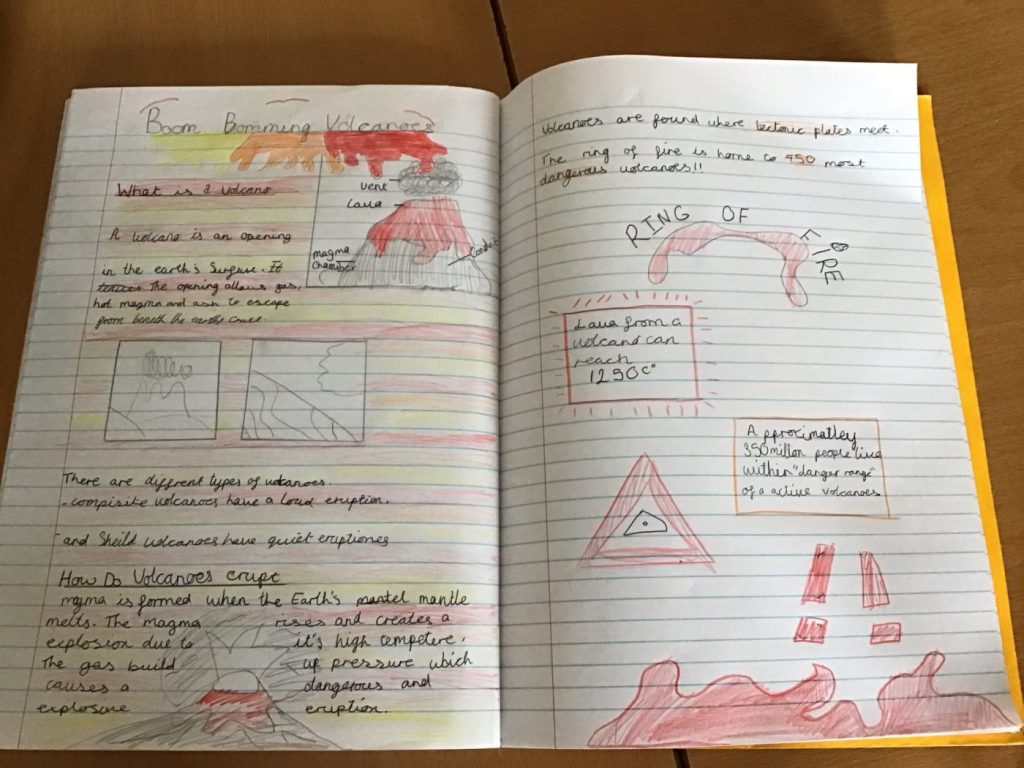 Boom Bomming Volcanoes
What is a Volcano
vent
Laua
magma
chamber
Conduit
A volcano is an opening
in the earth's Surfuse. It
the opening allows gas,
hot magma and ash to escape
from beneth the earths crust
There are different types of volcanoes.
- compisite volcanoes have a loud eruption.
- and Sheild volcanoes have quiet eruptiones
How Do Volcanoes erupt
mgma is formed when the Earth's mantel mantle
melts. The magma rises and creates a
explosion due to it's high tempetere.
The gas build up pressure which
causes a dangerous and
explosive eruption.
Volcanoes are found where tectonic plates meet.
The ring of fire is home to 450 most
dangerous volcanoes!!
RING OF FIRE
Lava from a
volcano can
reach
1250c°
Approximatley
350 millon people live
within "danger range"
of a active volcanoes